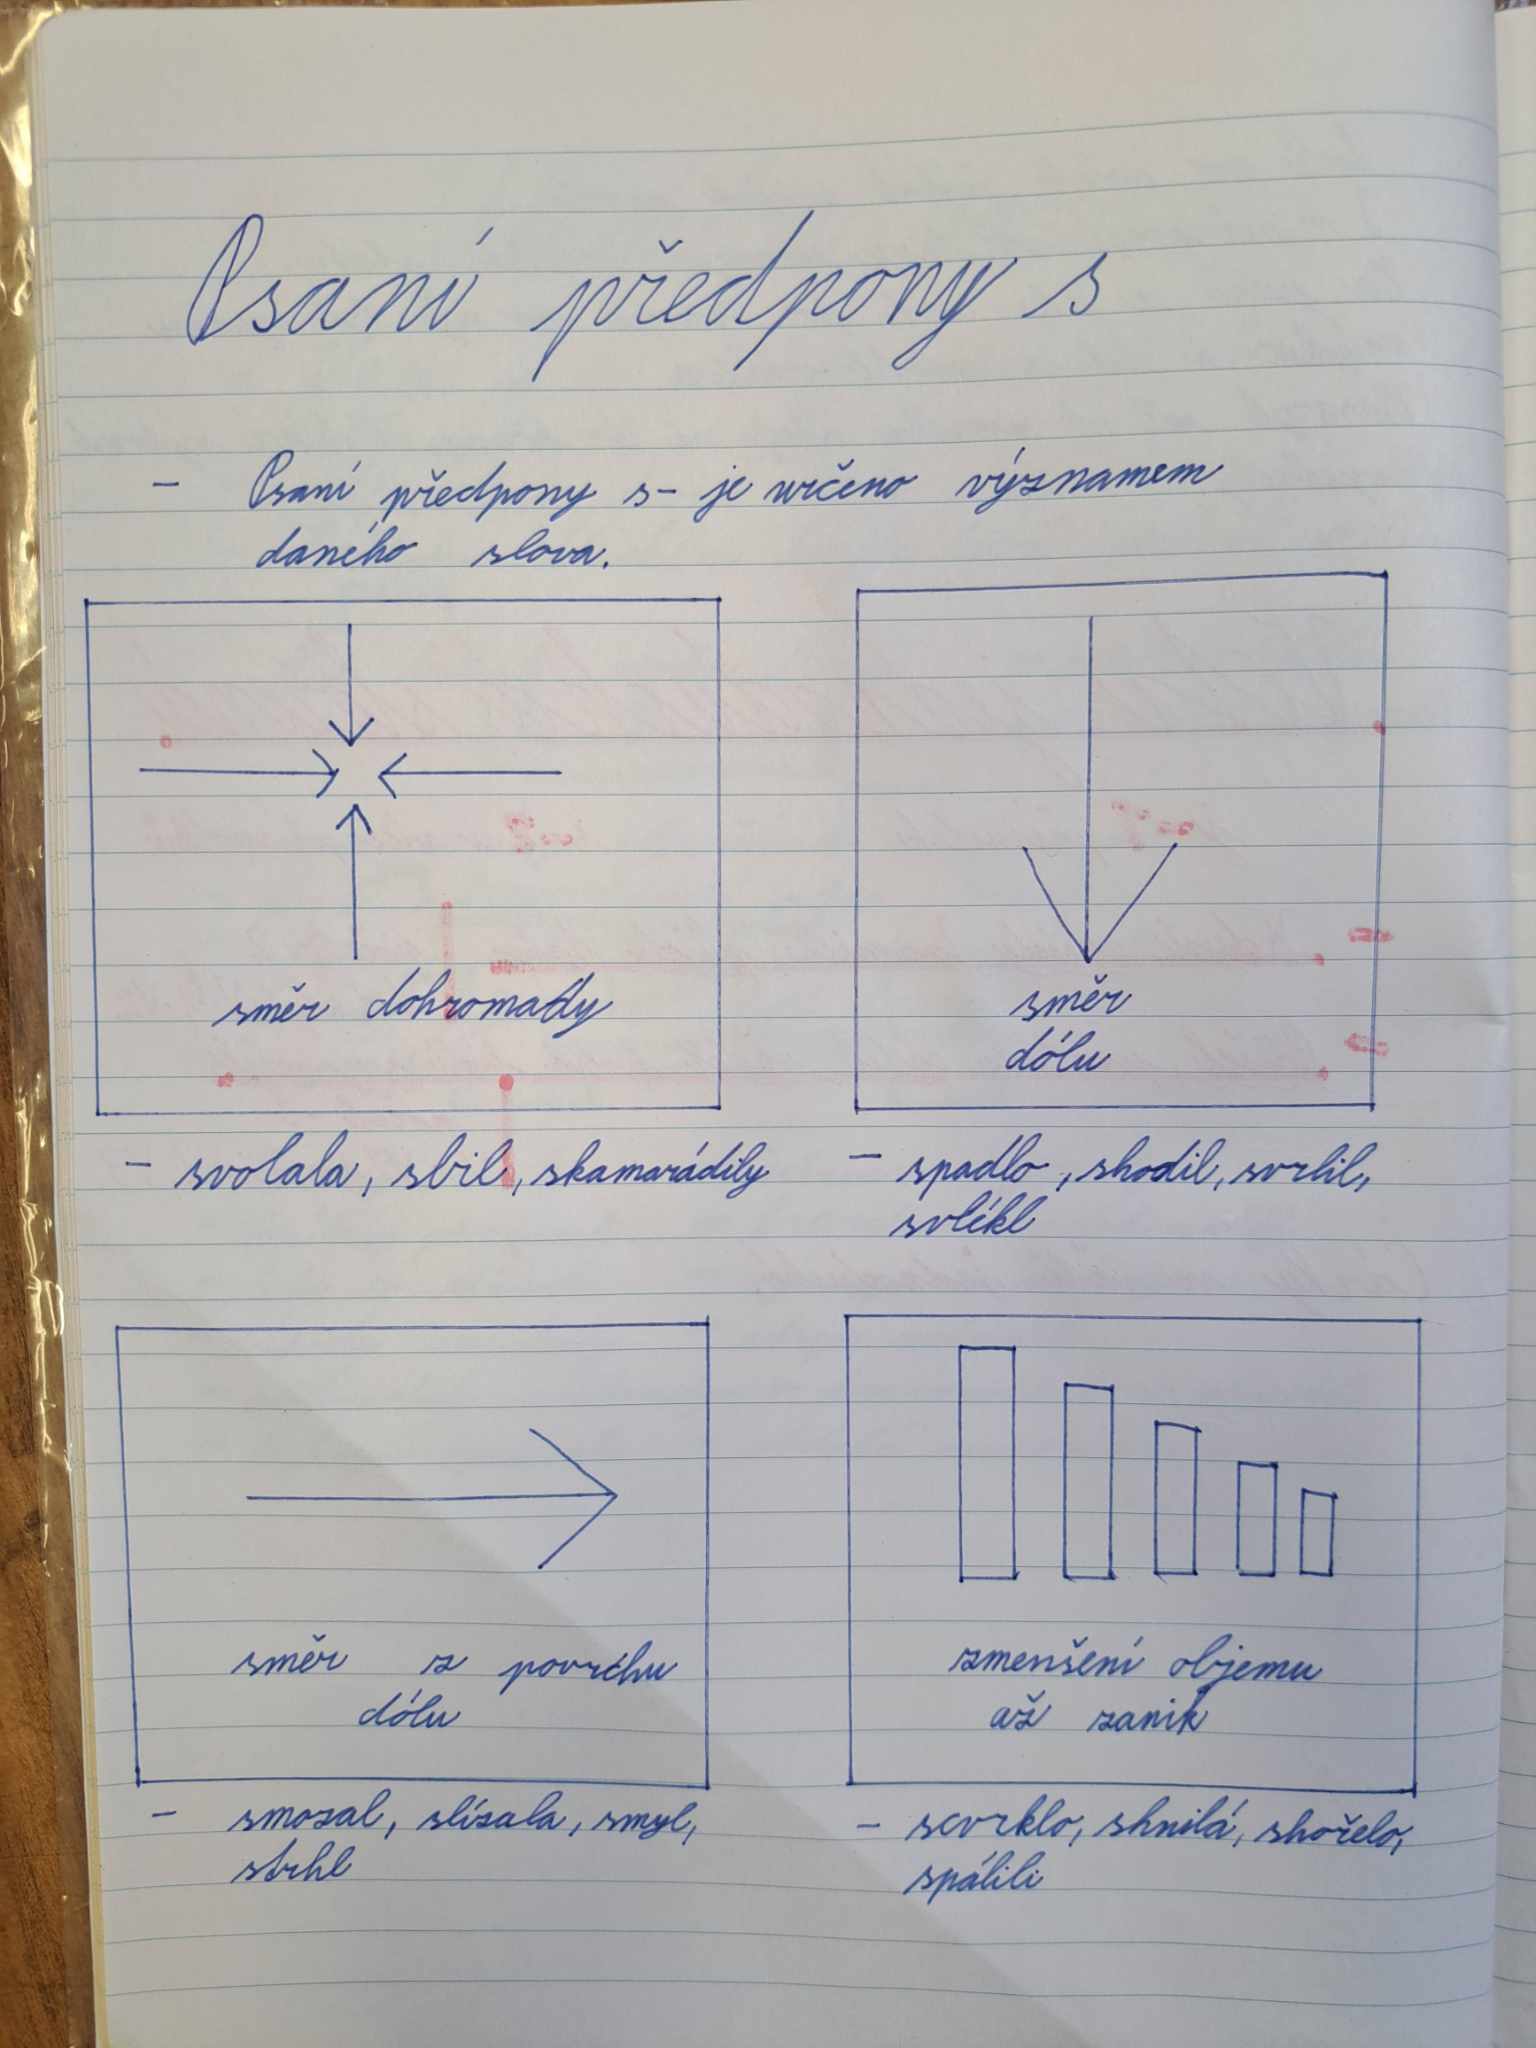 Psaní předpony s
- Psaní předpony s- je určeno významem
daného slova.
směr dohromady
směr
dólu
- svolala, sbil, skamarádily
- spadlo, shodil, svrhl,
svlékl
směr z povrchu
dólu
zmenšení objemu
až zanik
- smazal, slízala, smyl,
strhl
- scvrklo, shnilá, shořelo,
spálili